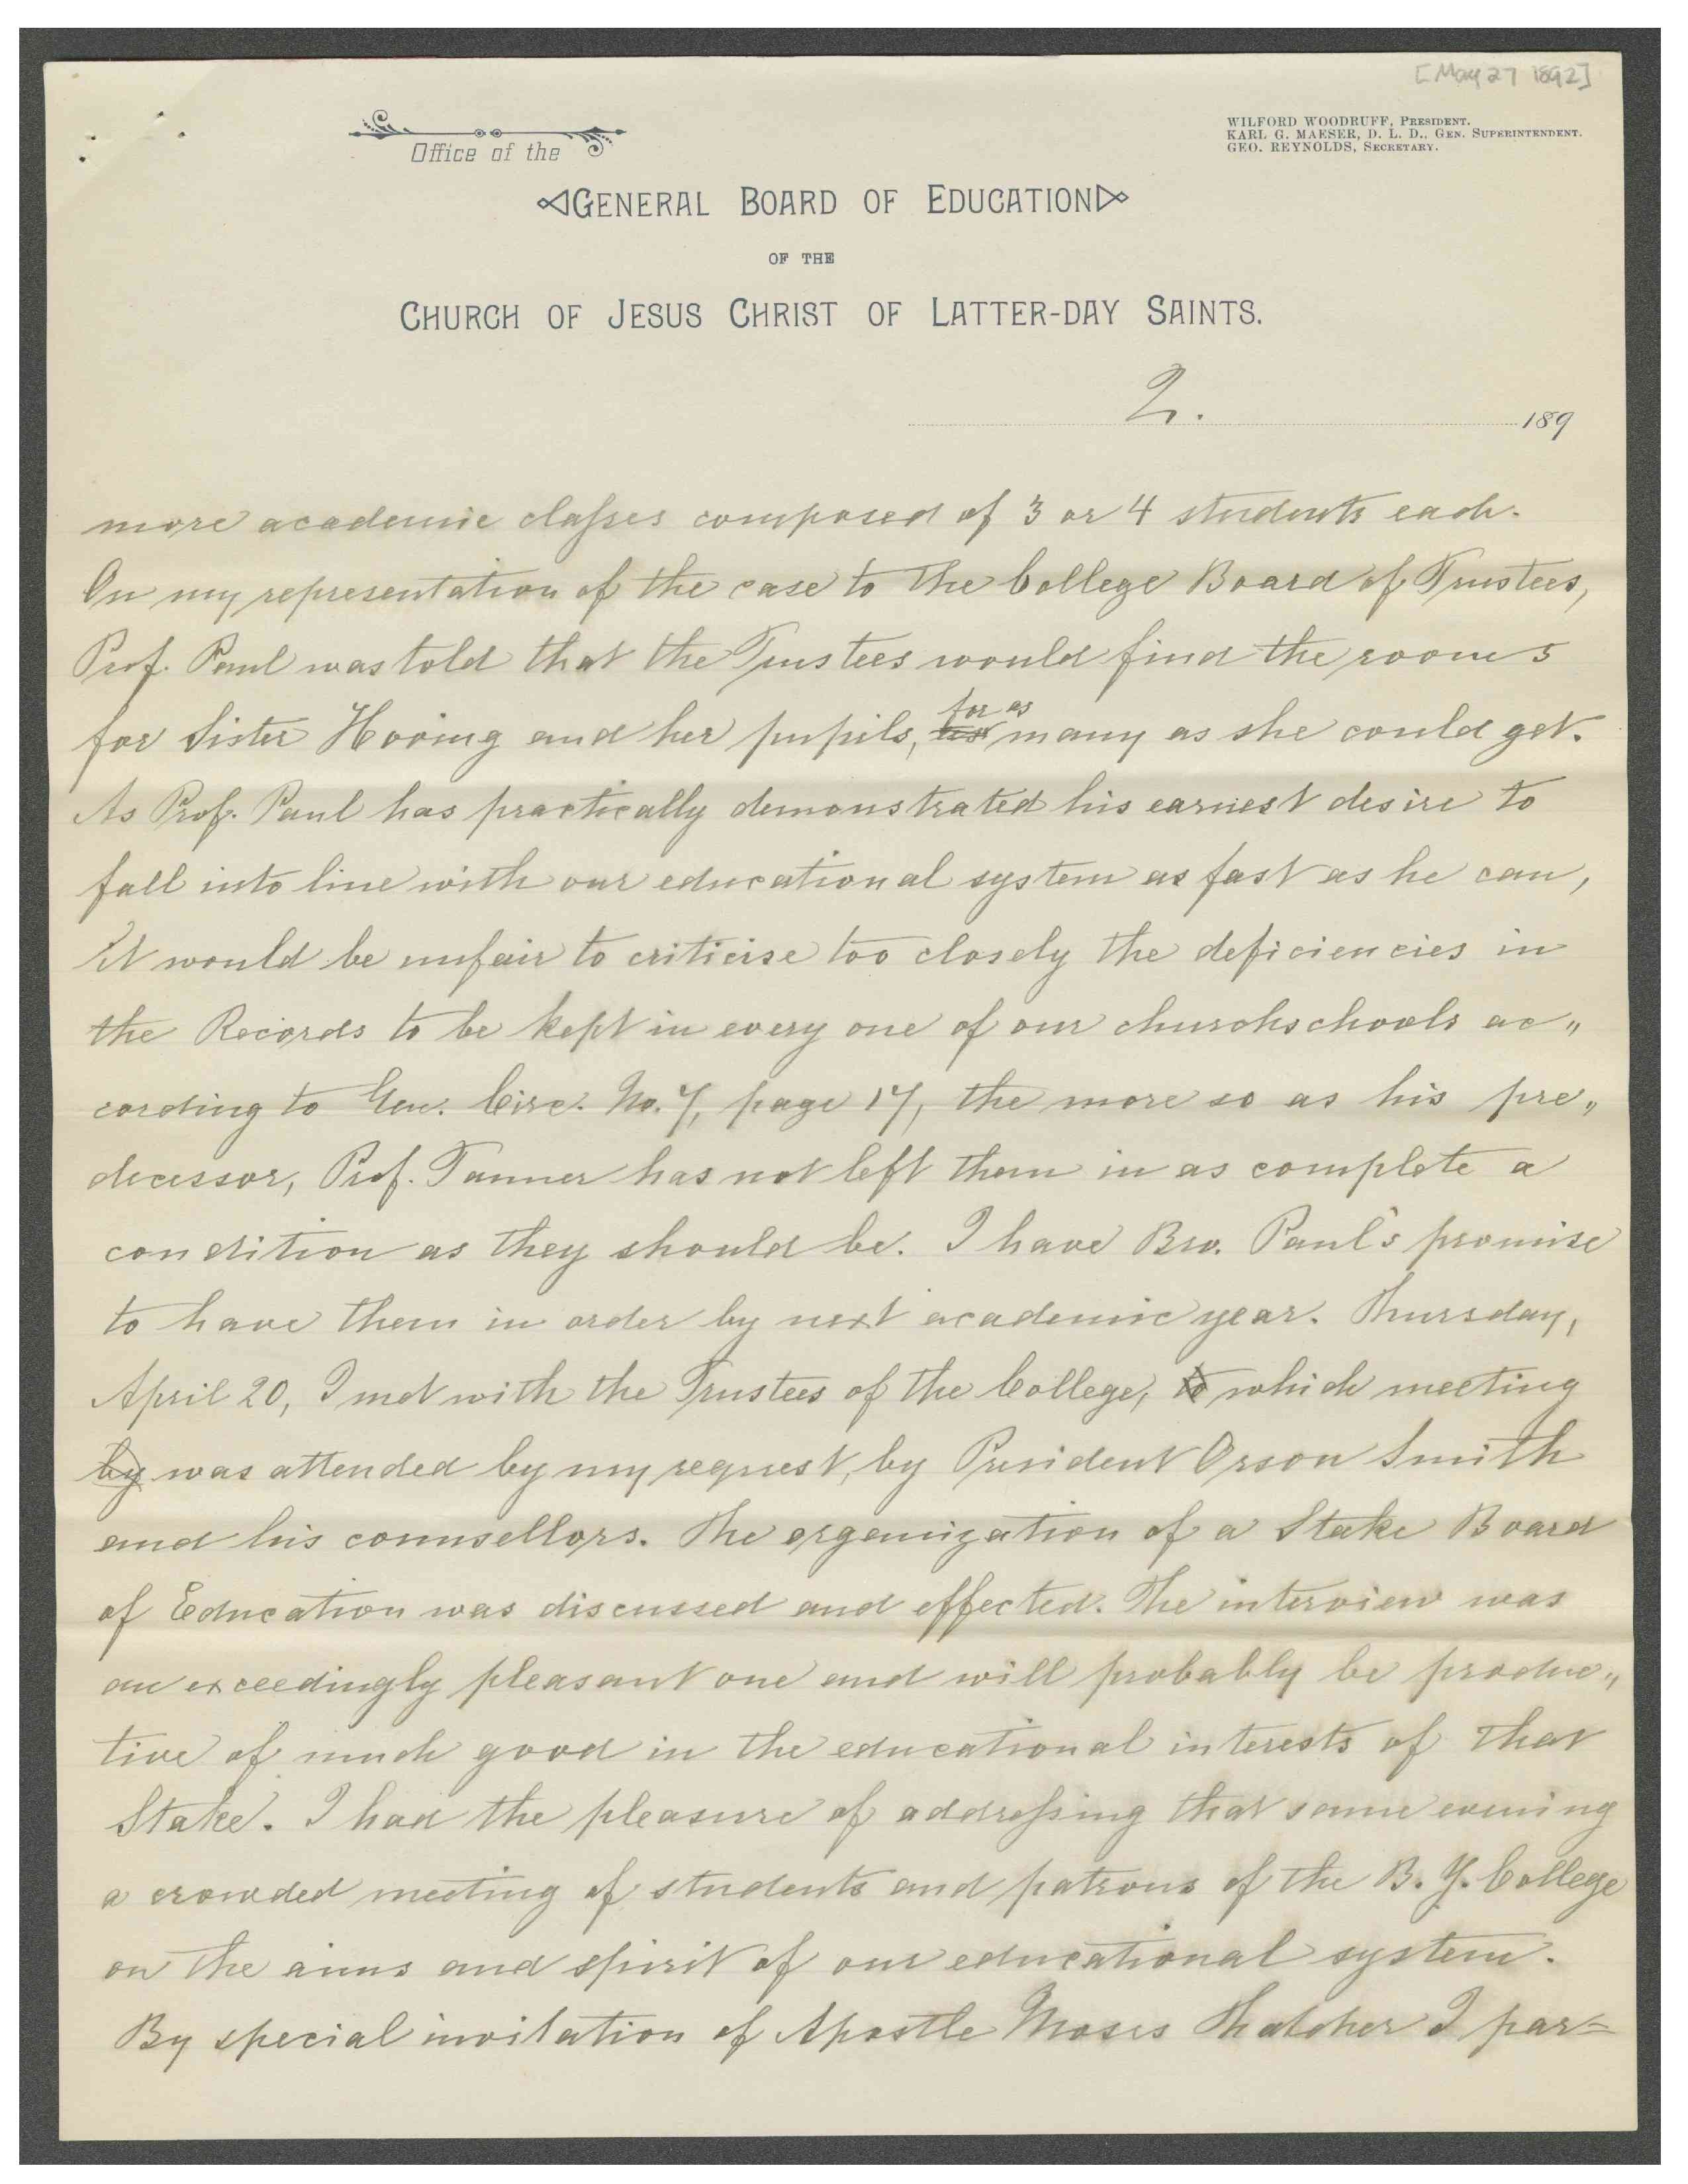 [May 27 1892]
WILFORD WOODRUFF, PRESIDENT.
KARL G. MAESER, D. L. D., GEN. SUPERINTENDENT.
GEO. REYNOLDS, SECRETARY.
Office of the
GENERAL BOARD OF EDUCATION
OF THE
CHURCH OF JESUS CHRIST OF LATTER-DAY SAINTS.
2. 189
more academic classes composed of 3 or 4 students each.
On my representation of the case to the College Board of Trustees,
Prof. Paul was told that the Trustees would find the rooms
for as
for Sister Hoving and her pupils, many as she could get.
As Prof. Paul has practically demonstrated his earnest desire to
fall into line with our educational system as fast as he can,
it would be unfair to criticise too closely the deficiencies in
the Records to be kept in every one of our churchschools ac„
cording to Gen. Circ. No. 7, page 17, the more so as his pre„
decessor, Prof. Tanner has not left them in as complete a
condition as they should be. I have Bro. Paul's promise
to have them in order by next academic year. Thursday,
April 20, I met with the Trustees of the College, to which meeting
by was attended by my request, by President Orson Smith
and his counsellors. The organization of a Stake Board
of Education was discussed and effected. The interview was
an exceedingly pleasant one and will probably be produc„
tive of much good in the educational interests of that
Stake. I had the pleasure of addressing that same evening
a crowded meeting of students and patrons of the B. Y. College
on the aims and spirit of our educational system.
By special invitation of Apostle Moses Thatcher I par=